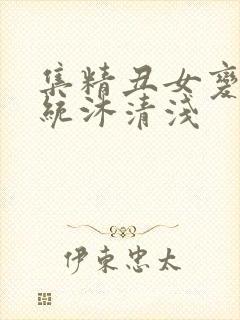 集精丑女变
统沐清浅
伊東忠太